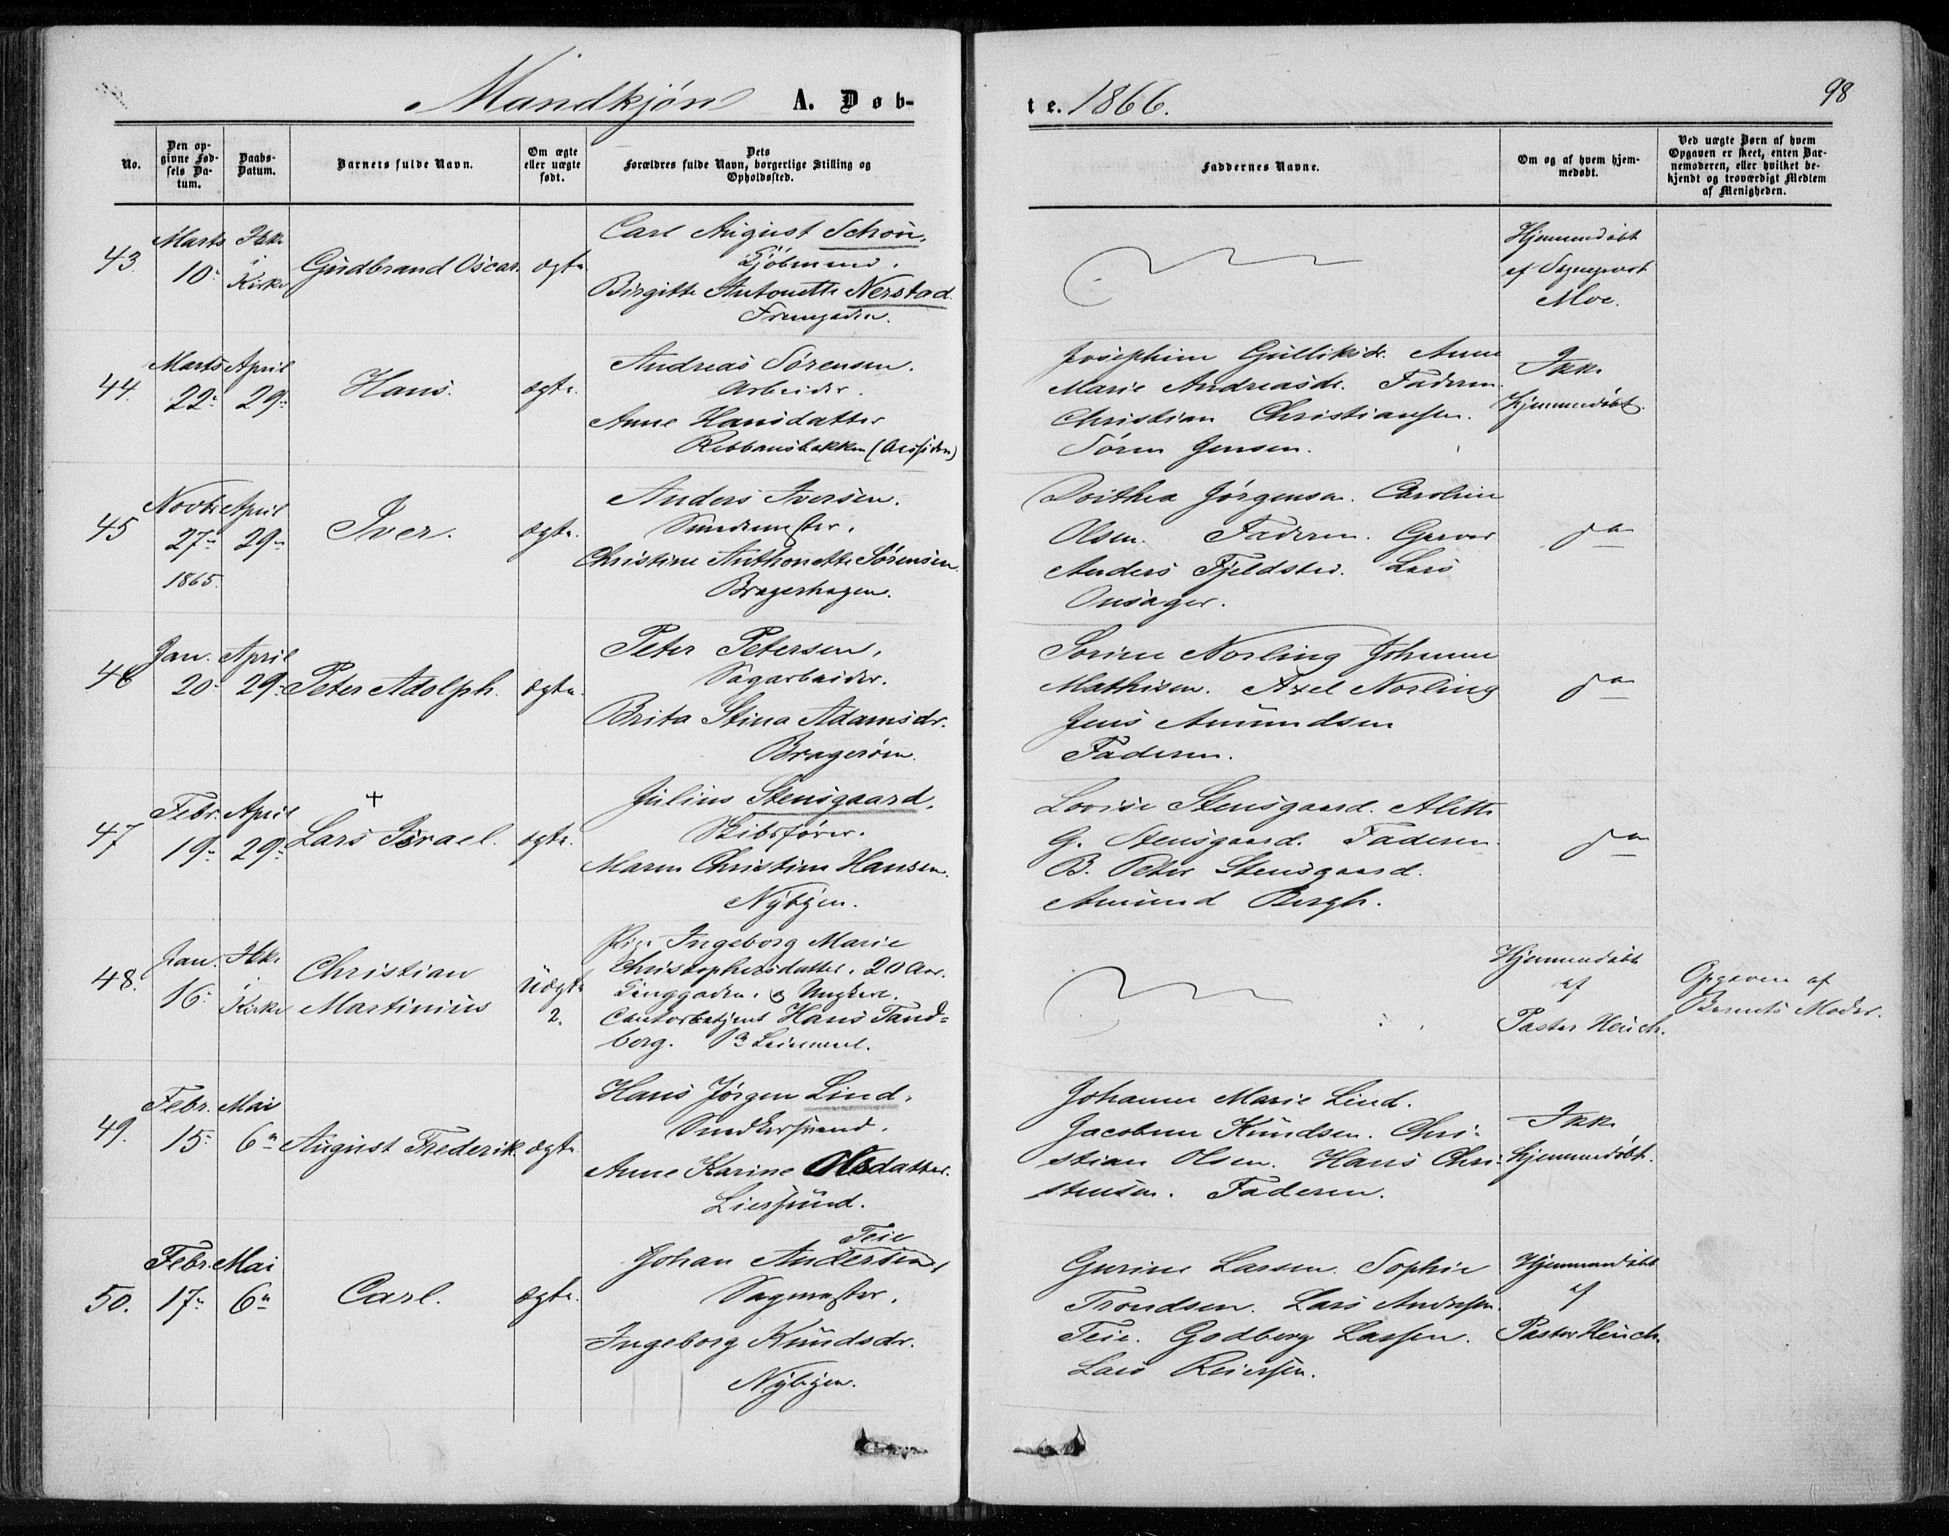 Mandkjøn A. Døb-
te. 1866.
98
No.
Den op-
givne Fød-
sels Da-
tum.
Daabs-
Datum.
Barnets fulde Navn.
Om ægte
eller uægte
født.
Dets
Forældres fulde Navn, borgerlige Stilling og
Opholdssted.
Faddernes Navne.
Om og af hvem hjem-
medøbt.
Ved uægte Børn af hvem
Opgaven er skeet, enten Bar-
nemoderen, eller hvilket be-
kjendt og troværdigt Medlem
af Menigheden.
43.
Marts
10
Ikke
i
Kirke
Gudbrand Oscar
ægte
Carl August Schou.
Kjøbmand.
Birgitte Antonette Nerstad.
Hjemmedøbt
af Sogneprest
Moe.
44.
Marts
22
April
29
Hans.
ægte.
Andreas Sørensen.
Arbeider.
Anne Hansdatter
Josephine Gulliksdr. Anne
Marie Andreasdr. Faderen.
Christian Christiansen.
Søren Jensen.
Ikke
hjemmedøbt.
45
Novbr
27
1865.
April
29
Iver.
ægte.
Anders Iversen.
Christine Anthonette Sørensen.
Bragerhagen.
Dorthea Jørgensen. Caroline
Olsen. Faderen. Garver
Anders Fjeldsted. Lars
Onsager.
do
46
Jan.
20
April
29
Peter Adolph.
ægte.
Peter Petersen,
Sagarbeider.
Brita Stina Adamsdr.
Bragerøen.
Sorine Norling Johanne
Mathisen. Axel Norling
Jens Amundsen
Faderen.
do
47
Febr.
19
April
29
+
Lars Israel.
ægte.
Julius Stensgaard.
Skibsfører.
Maren Christine Hansen.
Nybyen.
Lovise Stensgaard. Alette
G. Stensgaard. Faderen.
B. Peter Stensgaard.
Amund Bergh.
do
48.
Jan.
16
Ikke
i
Kirke
Christian
Martinius
Uægte
2.
Pige Ingeborg Marie
Christophersdatter. 20 Aar.
Tinggaden. og Ungkarl.
Contorbetjent Hans Tand-
berg.
Hjemmedøbt
af
Pastor Heuch.
Opgaven af
Barnets Moder.
49.
Febr.
15
Mai
6
August Frederik
ægte
Hans Jørgen Lind.
Smedesvend.
Anne Karine Olsdatter.
Liersund.
Johanne Marie Lind.
Jacobine Knudsen. Chri-
stian Olsen. Hans Chri-
stensen. Faderen.
Ikke
hjemmedøbt.
50.
Febr.
17
Mai
6
Carl.
ægte.
Teie
Johan Andersen,
Sagmester.
Ingeborg Knudsdr.
Nybyen.
Gurine Larsen. Sophie
Trondsen. Lars Andersen
Teie. Godborg Larsen.
Lars Reiersen.
Hjemmedøbt
af
Pastor Heuch.